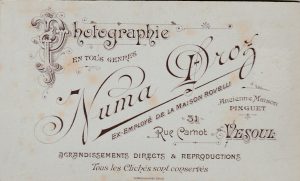 Photographie
EN TOUS GENRES
Numa Droz
EX-EMPLOYÉ DE LA MAISON ROVELLI
Ancienne Maison
PINGUET
31
Rue Carnot - VESOUL
AGRANDISSEMENTS DIRECTS & REPRODUCTIONS
Tous les Clichés sont conservés